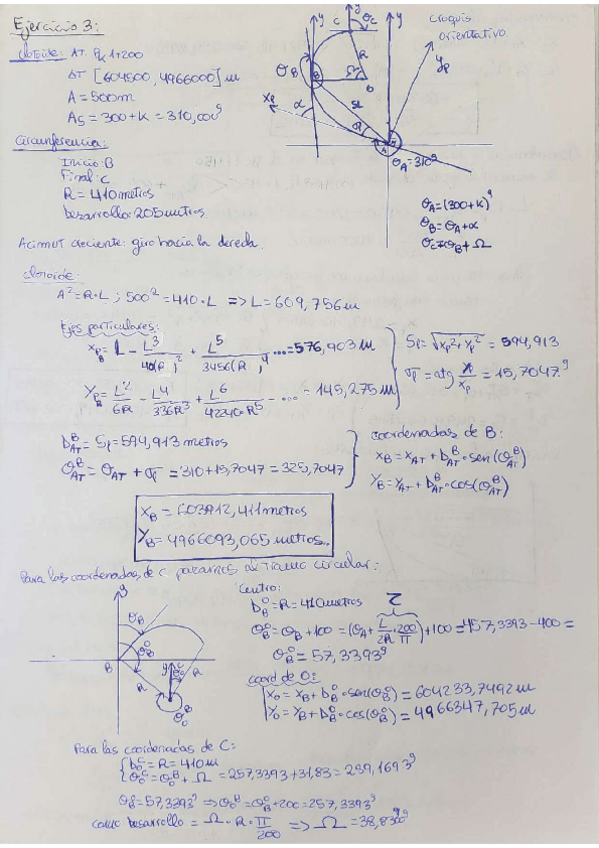 Ejercicio 3:
clotoide: AT. Pk 1+200
AT [604500, 4966000] m
A = 500m
As = 300+K = 310,000g
Circunferencia:
Inicio: B
Final: C
R = 410 metros
Desarrollo: 205 metros
Acimut creciente: giro hacia la derecha.
croquis
orientativo.
y
y
C
θc
R
Ω
θB
B
O
yp
xp
α
SL
A
θA=310g
θA=(300+K)g
θB=θA+α
θc=θB+Ω
clotoide:
A²=R·L ; 500² = 410·L => L=609,756m
Ejes particulares:
XpB = L - L³/40(R)² + L⁵/3456(R)⁴ ... = 576,903 m
YpB = L²/6R - L⁴/336R³ + L⁶/42240·R⁵ - ... = 145,275 m
Sp = √xp²+yp² = 594,913
σp = atg yp/xp = 15,7047g
DATB = Sp = 594,913 metros
θATB = θAT + σp = 310+15,7047 = 325,7047
coordenadas de B:
XB = XAT + DATB·sen(θATB)
YB = YAT + DATB·cos(θATB)
XB = 603912,411 metros
YB = 4966093,065 metros..
Para las coordenadas de C pasamos al tramo circular:
Centro:
DBO = R = 410 metros
τ
θBO = θB+100 = (θA + L/2R·200/π)+100 = 457,3393-400 =
θBO = 57,3393g
coord de O:
XO = XB + DBO·sen(θBO) = 604233,7492 m
YO = YB + DBO·cos(θBO) = 4966347,705 m
y
θB
B
R
R
O
Para las coordenadas de C:
DOC = R = 410m
θOC = θOB + Ω = 257,3393+31,83 = 289,1693g
θBO = 57,3393g => θOB = θBO+200 = 257,3393g
como desarrollo = Ω·R·π/200 => Ω =